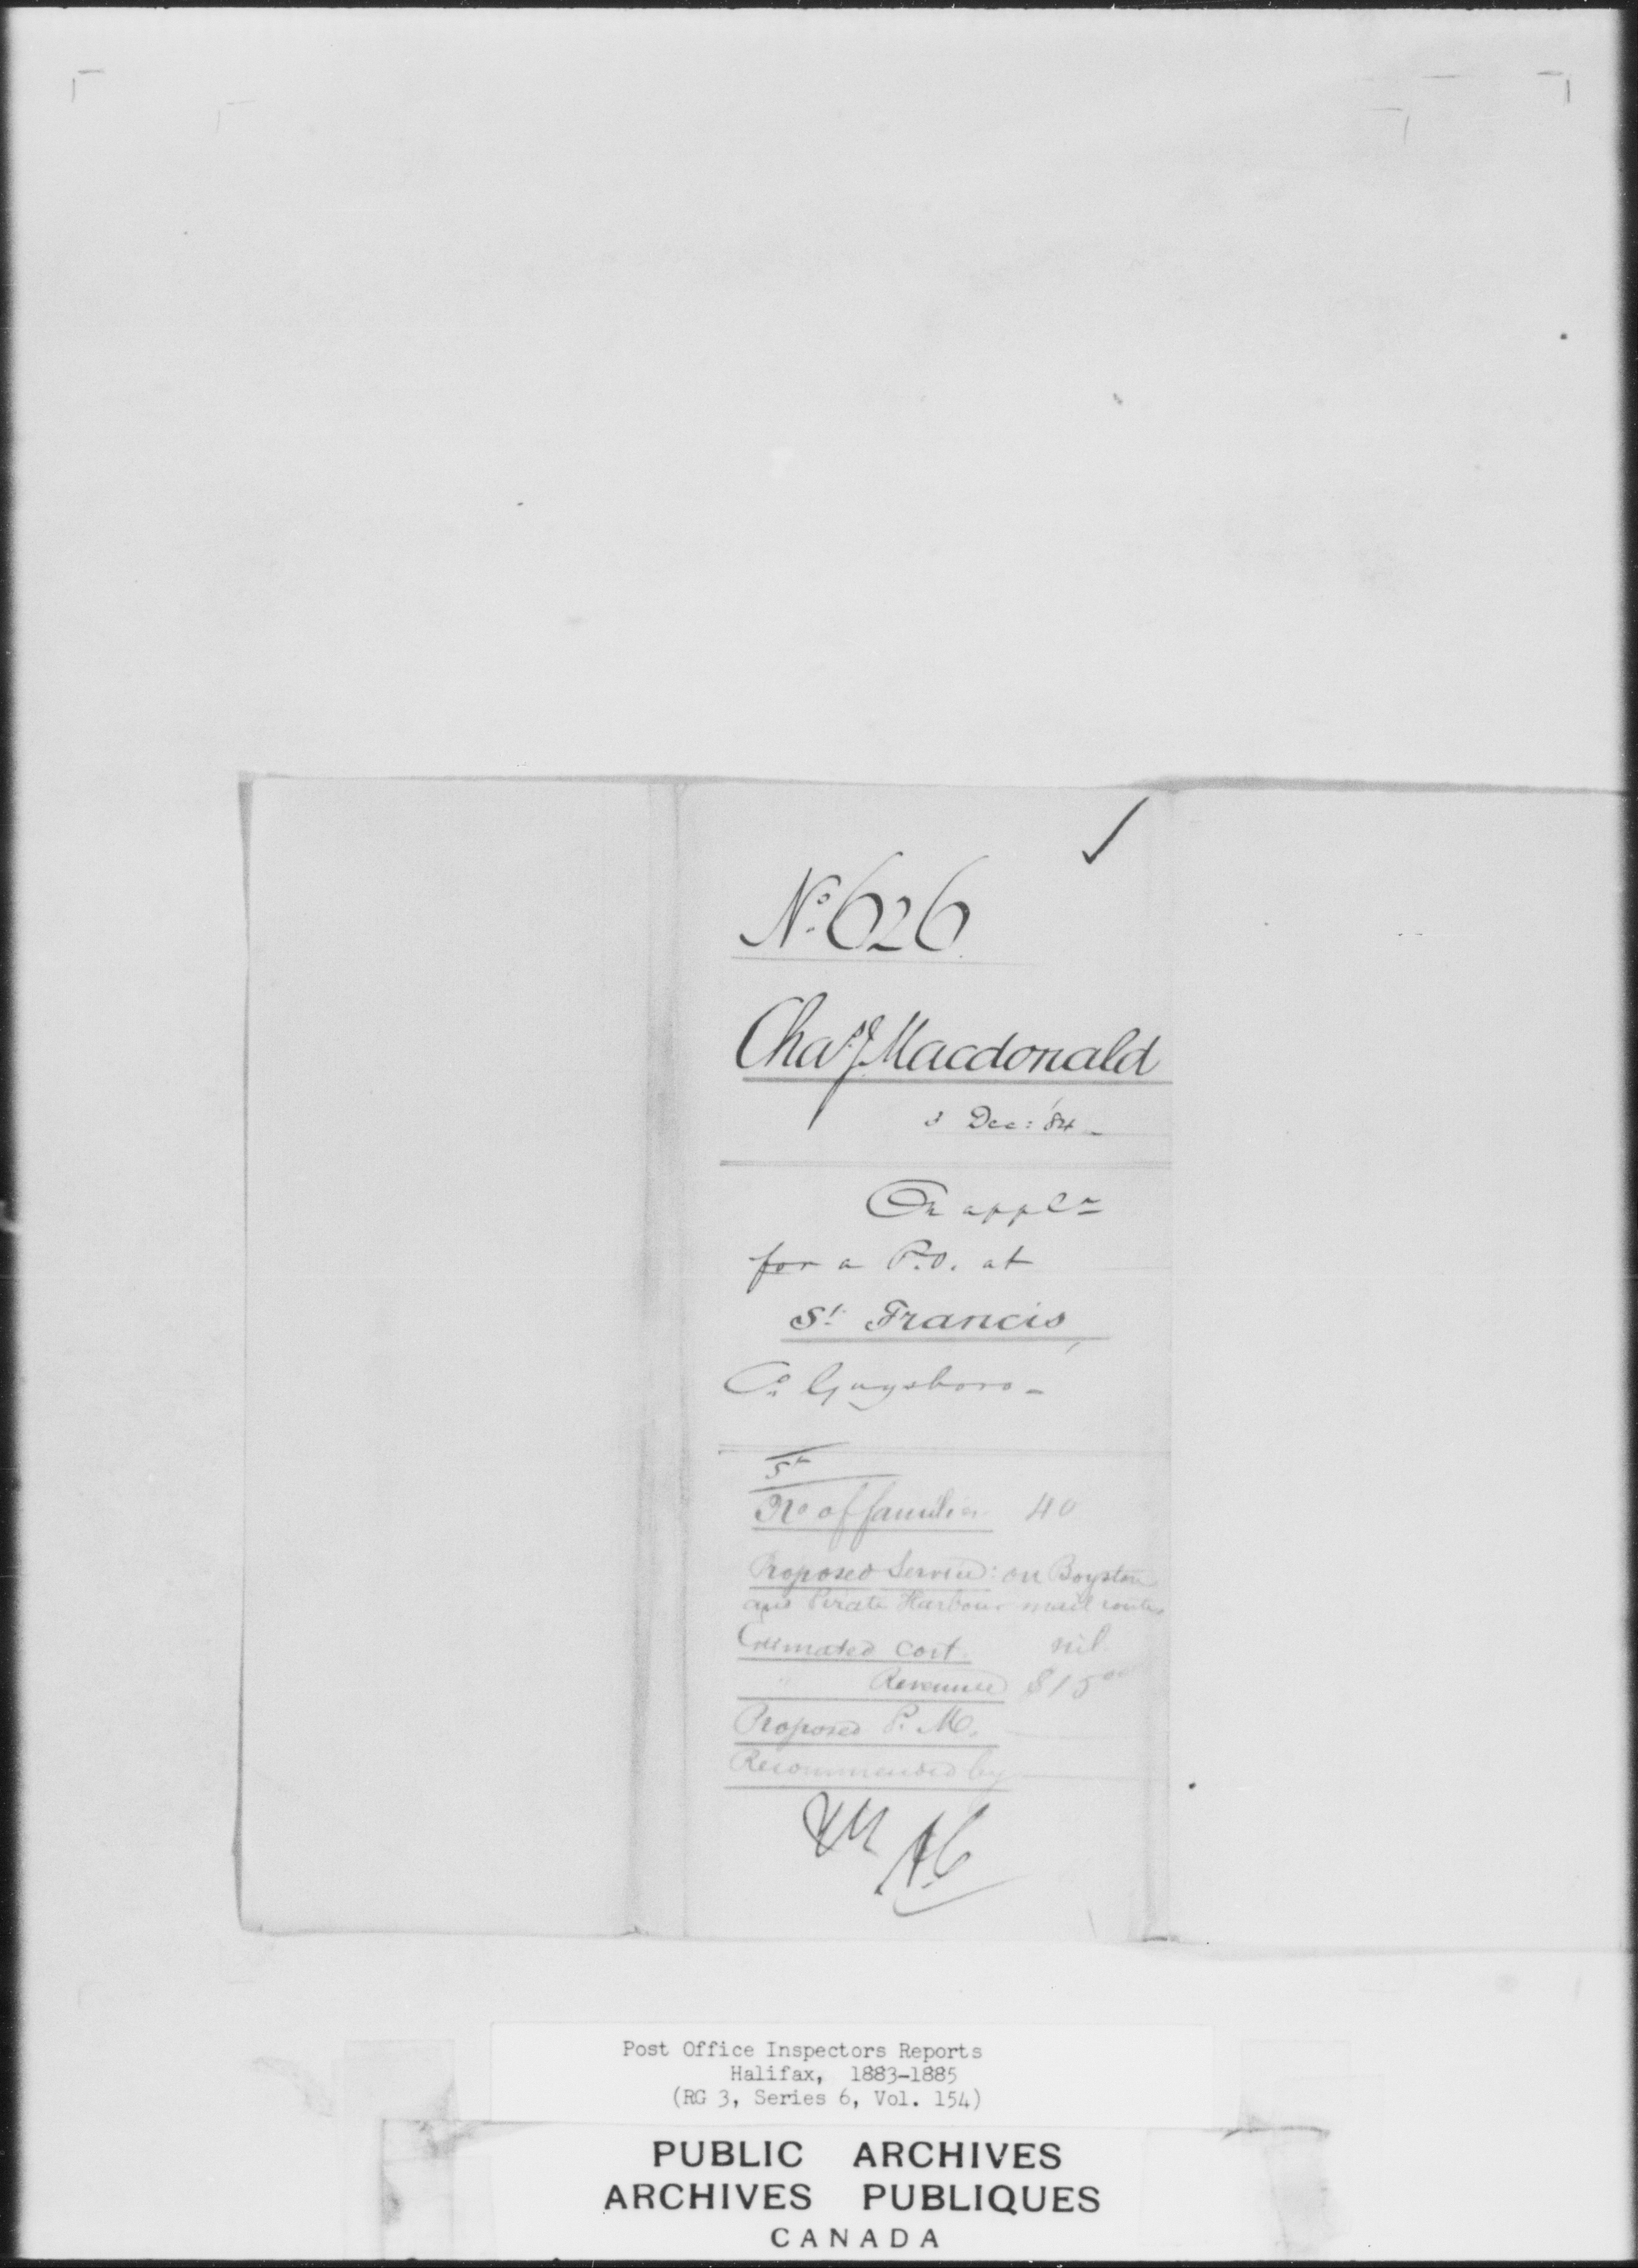 No. 626
Chas. J. Macdonald
3 Dec: '84
On appln
for a P.O. at
St. Francis,
Co. Guysboro -
No of families 40
Proposed Service: on Boylston
and Pirate Harbour mail route
Estimated cost. nil
" Revenue $15 00
Proposed P. M.
Recommended by
Post Office Inspectors Reports
Halifax, 1883-1885
(RG 3, Series 6, Vol. 154)
PUBLIC ARCHIVES
ARCHIVES PUBLIQUES
CANADA